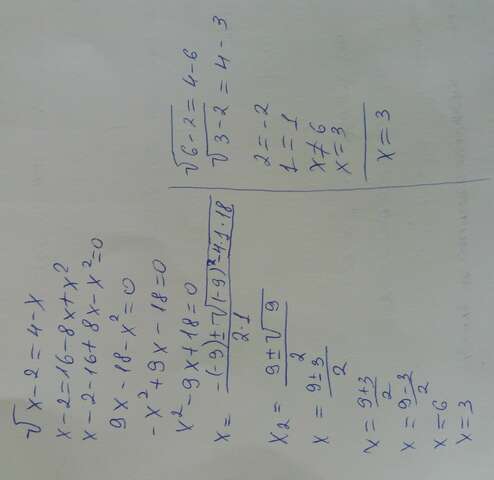 √x-2 = 4-x
x-2=16-8x+x²
x-2-16+8x-x²=0
9x-18-x²=0
-x²+9x-18=0
x²-9x+18=0
x= -(-9)±√(-9)²-4·1·18 / 2·1
x₂= 9±√9 / 2
x = 9±3 / 2
x= 9+3 / 2
x= 9-3 / 2
x=6
x=3
√6-2=4-6
√3-2=4-3
2=-2
1=1
x≠6
x=3
x=3